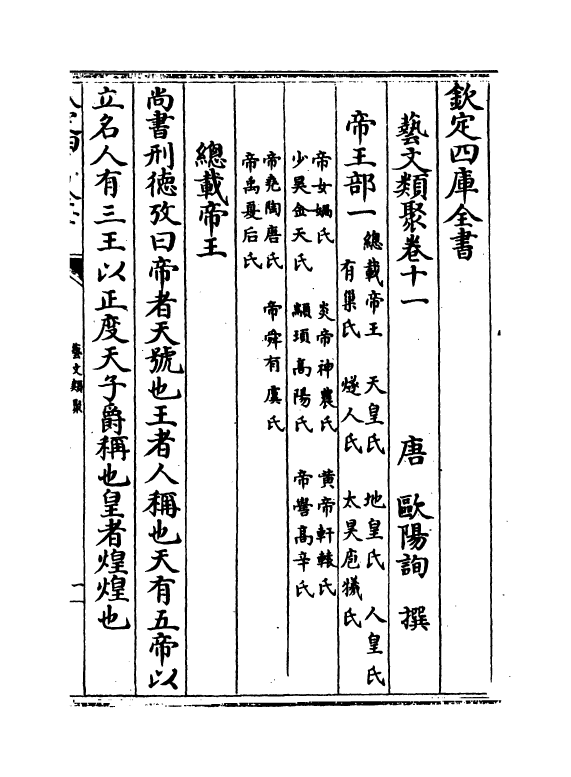 欽定四庫全書
藝文類聚卷十一
唐 歐陽詢 撰
帝王部一
總載帝王 天皇氏 地皇氏 人皇氏
有巢氏 燧人氏 太昊庖犧氏
帝女媧氏 炎帝神農氏 黃帝軒轅氏
少昊金天氏 顓頊高陽氏 帝嚳高辛氏
帝堯陶唐氏 帝舜有虞氏
帝禹夏后氏
總載帝王
尚書刑徳攷曰帝者天號也王者人稱也天有五帝以
立名人有三王以正度天子爵稱也皇者煌煌也
藝文類聚
一